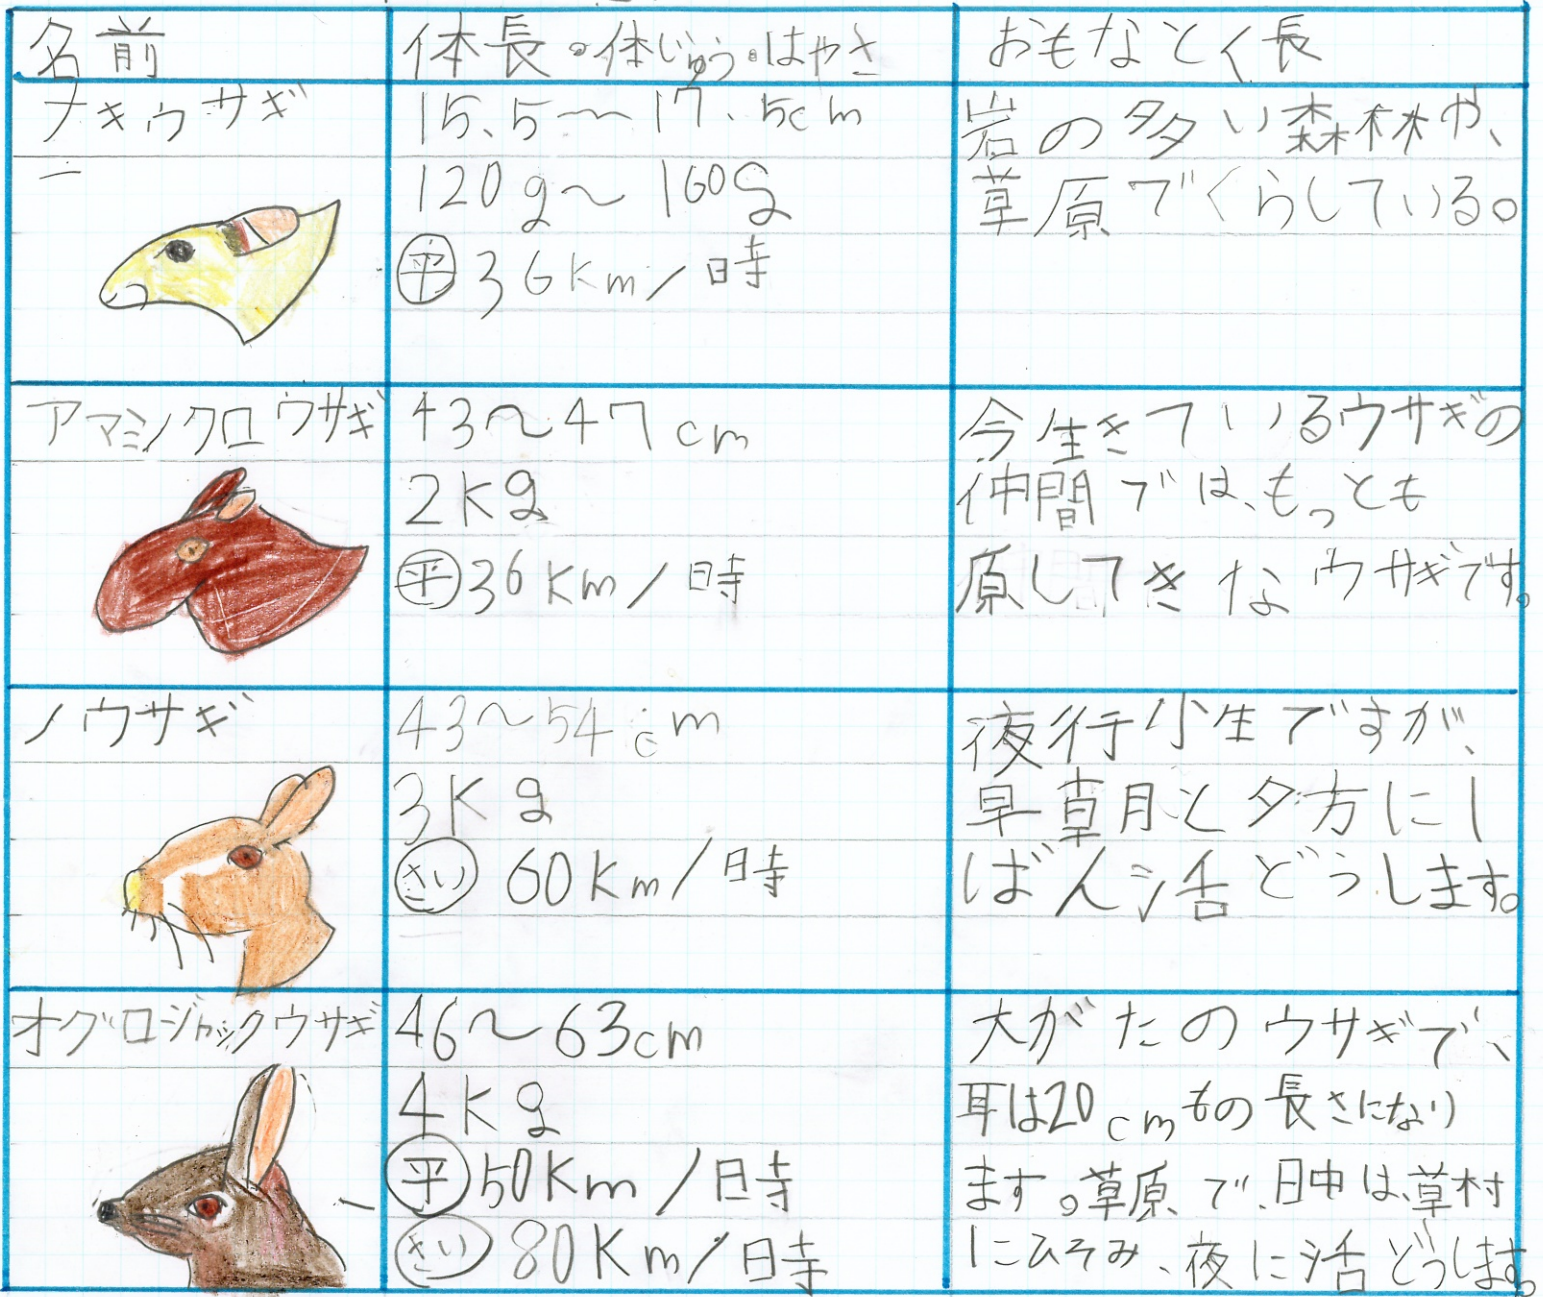 名前 体長・体じゅう・はやさ おもなとく長
ナキウサギ
15.5〜17.5cm
120g〜160g
㊥36Km/時
岩の多い森林や、
草原でくらしている。
アマミノクロウサギ
43〜47cm
2Kg
㊥36Km/時
今生きているウサギの
仲間では、もっとも
原してきなウサギです。
ノウサギ
43〜54cm
3Kg
さい 60Km/時
夜行性ですが、
早朝と夕方にし
ばん活どうします。
オグロジャックウサギ
46〜63cm
4Kg
平50Km/時
さい 80Km/時
大がたのウサギで、
耳は20cmもの長さになり
ます。草原で、日中は、草村
にひそみ、夜に活どうします。